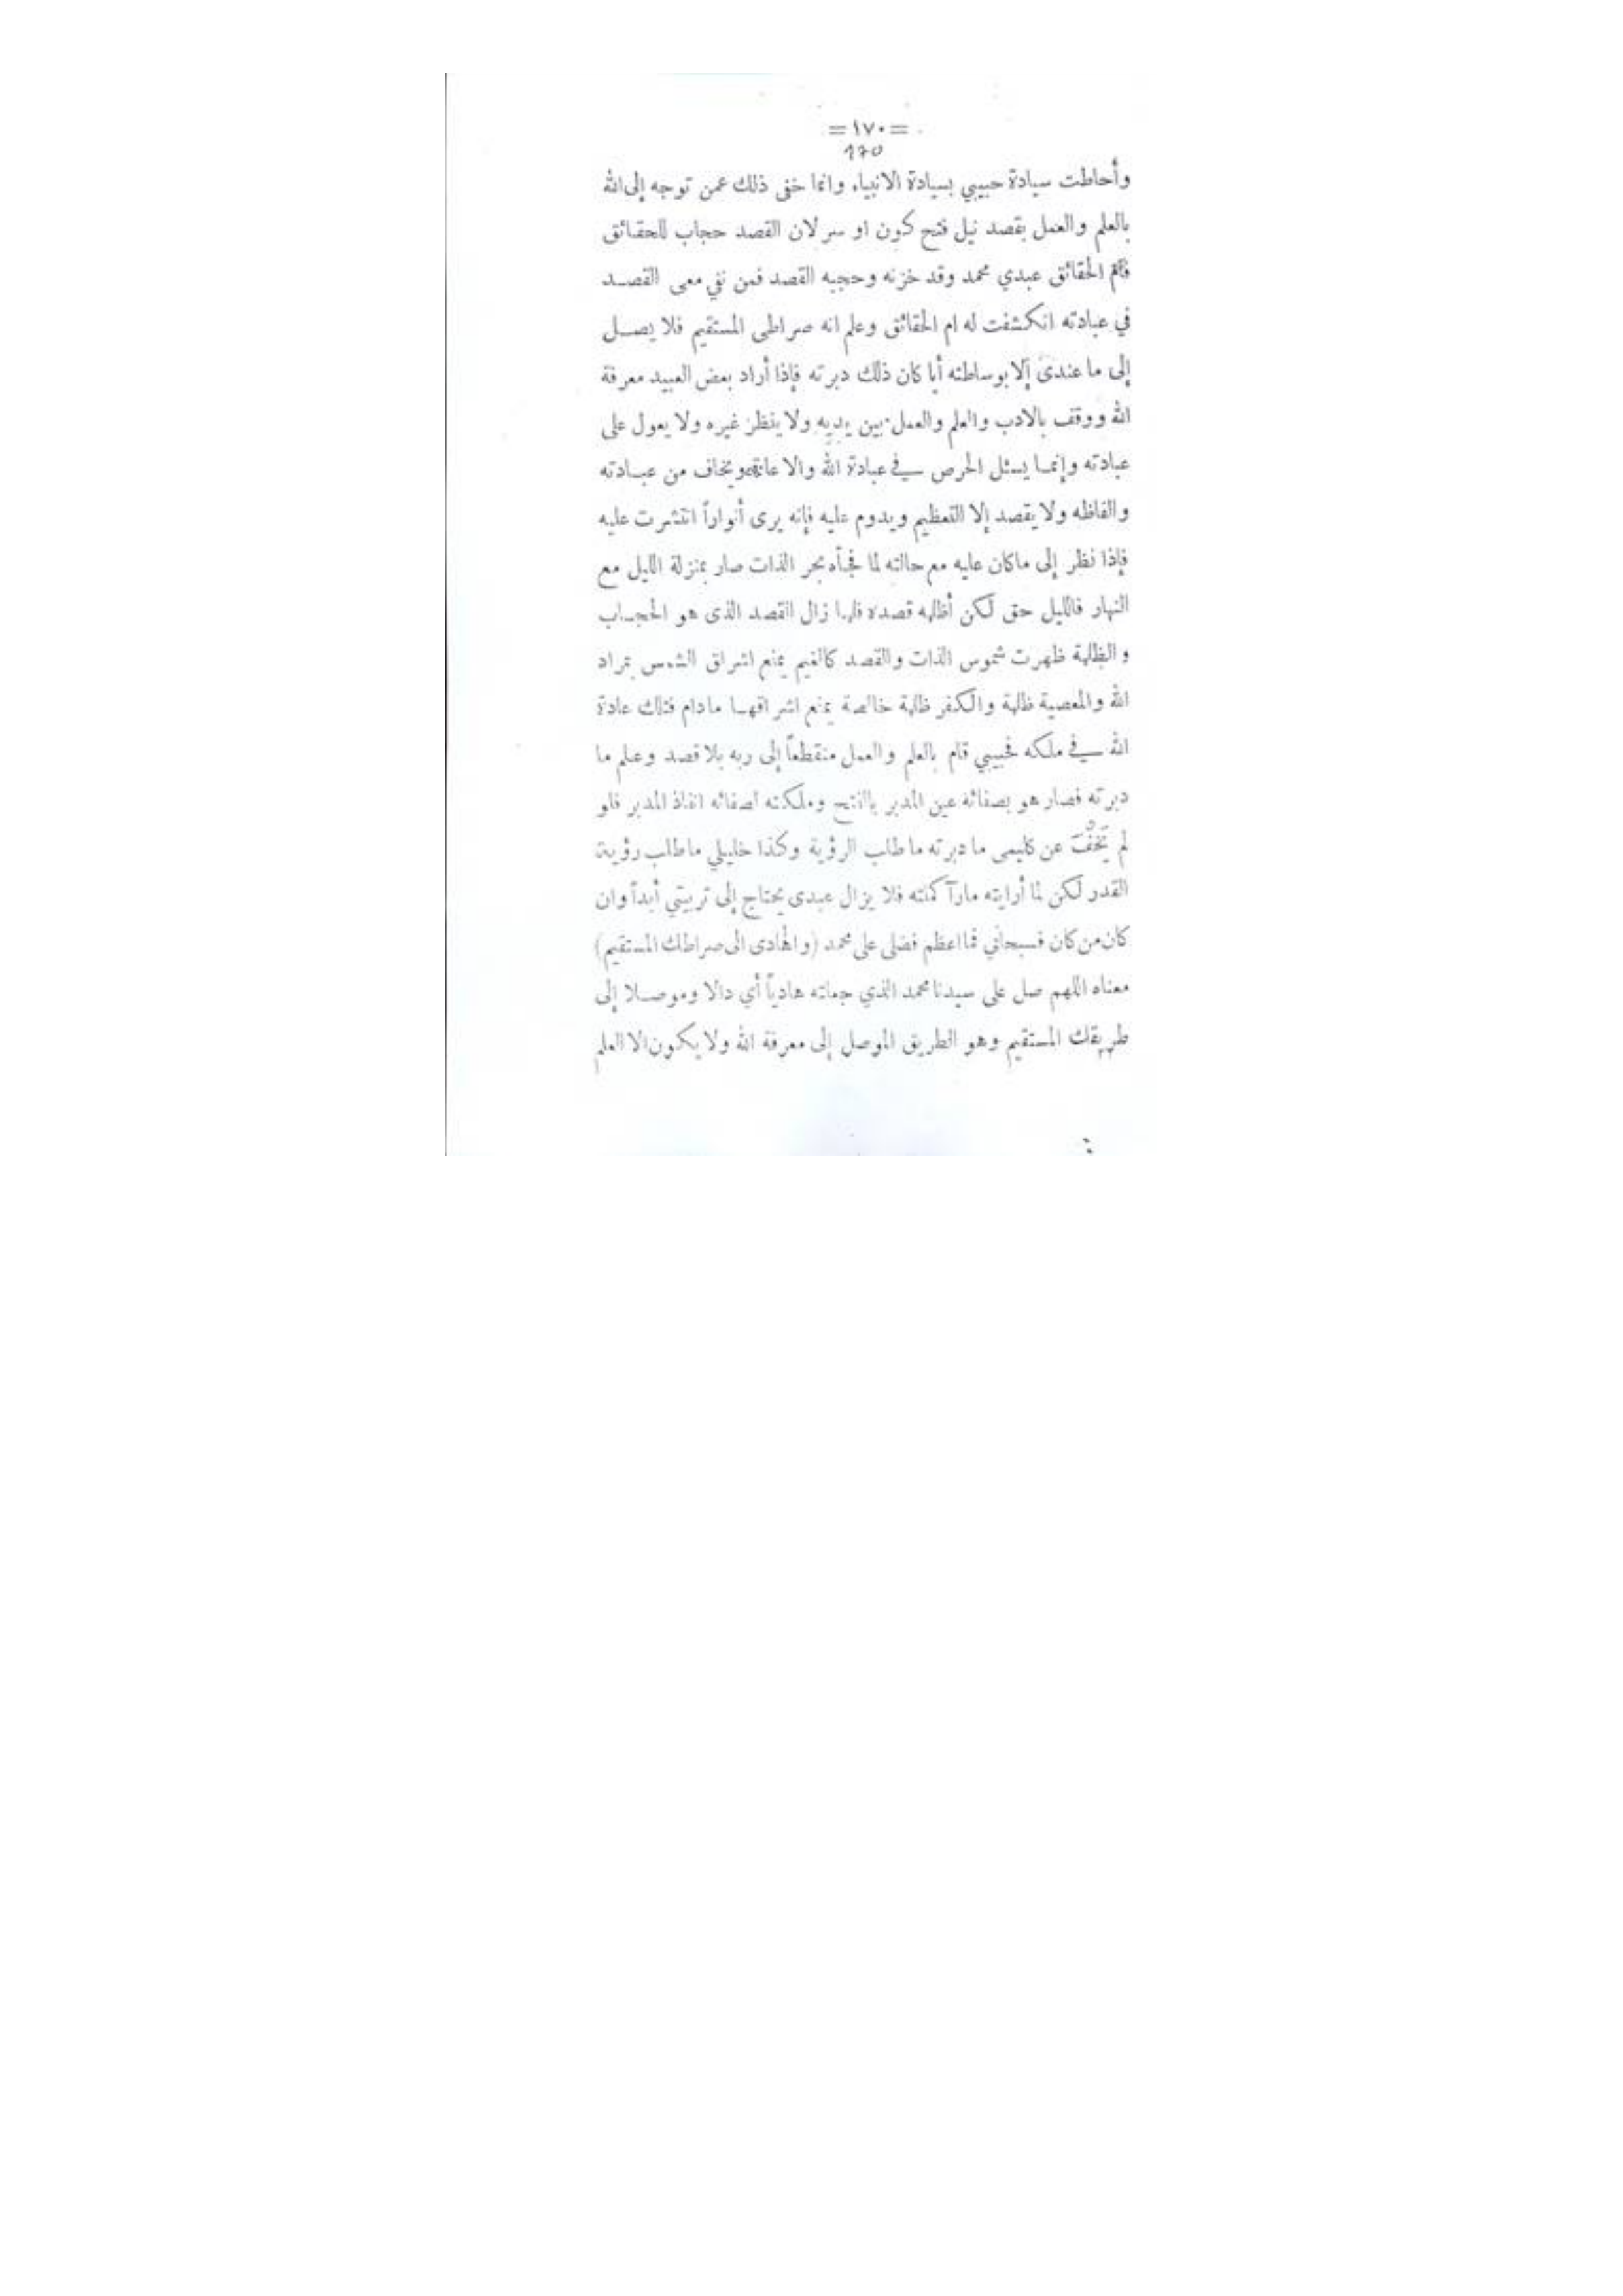 =١٧٠=
170
وأحاطت سيادة حبيبي بسيادة الانبياء وانما خفى ذلك عمن توجه إلى الله
بالعلم والعمل بقصد نيل فتح كون او سر لان القصد حجاب للحقائق
فأم الحقائق عبدي محمد وقد خزنه وحجبه القصد فمن نفي معى القصد
في عبادته انكشفت له ام الحقائق وعلم انه صراطى المستقيم فلا يصل
إلى ما عندى إلا بوساطته أيا كان ذلك دبرته فإذا أراد بعض العبيد معرفة
الله ووقف بالادب والعلم والعمل بين يديه ولا ينظر غيره ولا يعول على
عبادته وإنما يسئل الحرص في عبادة الله والاعانة ويخاف من عبادته
والفاظه ولا يقصد إلا التعظيم ويدوم عليه فإنه يرى أنواراً انتشرت عليه
فإذا نظر إلى ماكان عليه مع حالته لما فجأه بحر الذات صار بمنزلة الليل مع
النهار فالليل حق لكن أظلمه قصده فلما زال القصد الذى هو الحجاب
والظلمة ظهرت شموس الذات والقصد كالغيم يمنع اشراق الشمس بمراد
الله والمعصية ظلمة والكفر ظلمة خالصة يمنع اشراقها مادام فتلك عادة
الله في ملكه فحبيبي قام بالعلم والعمل منقطعاً إلى ربه بلا قصد وعلم ما
دبرته فصار هو بصفائه عين المدبر بالفتح وملكته لصفائه انفاذ المدبر فلو
لم تَخْفَ عن كليمى ما دبرته ما طلب الرؤية وكذا خليلي ما طلب رؤية
القدر لكن لما أرايته مارآ كملته فلا يزال عبدى يحتاج إلى تربيتي أبداً وان
كان من كان فسبحاني فما اعظم فضلى على محمد (والهادى الى صراطك المستقيم)
معناه اللهم صل على سيدنا محمد الذي جعلته هادياً أي دالا وموصلا إلى
طريقك المستقيم وهو الطريق الموصل إلى معرفة الله ولا يكون الا العلم